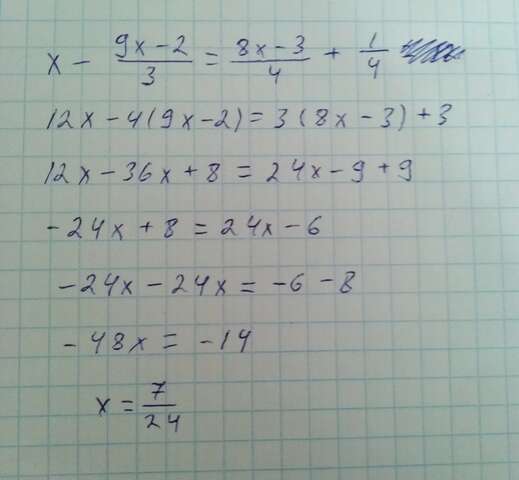 x - \frac{9x-2}{3} = \frac{8x-3}{4} + \frac{1}{4}
12x - 4(9x-2) = 3(8x-3) + 3
12x - 36x + 8 = 24x - 9 + 9
-24x + 8 = 24x - 6
-24x - 24x = -6 - 8
-48x = -14
x = \frac{7}{24}